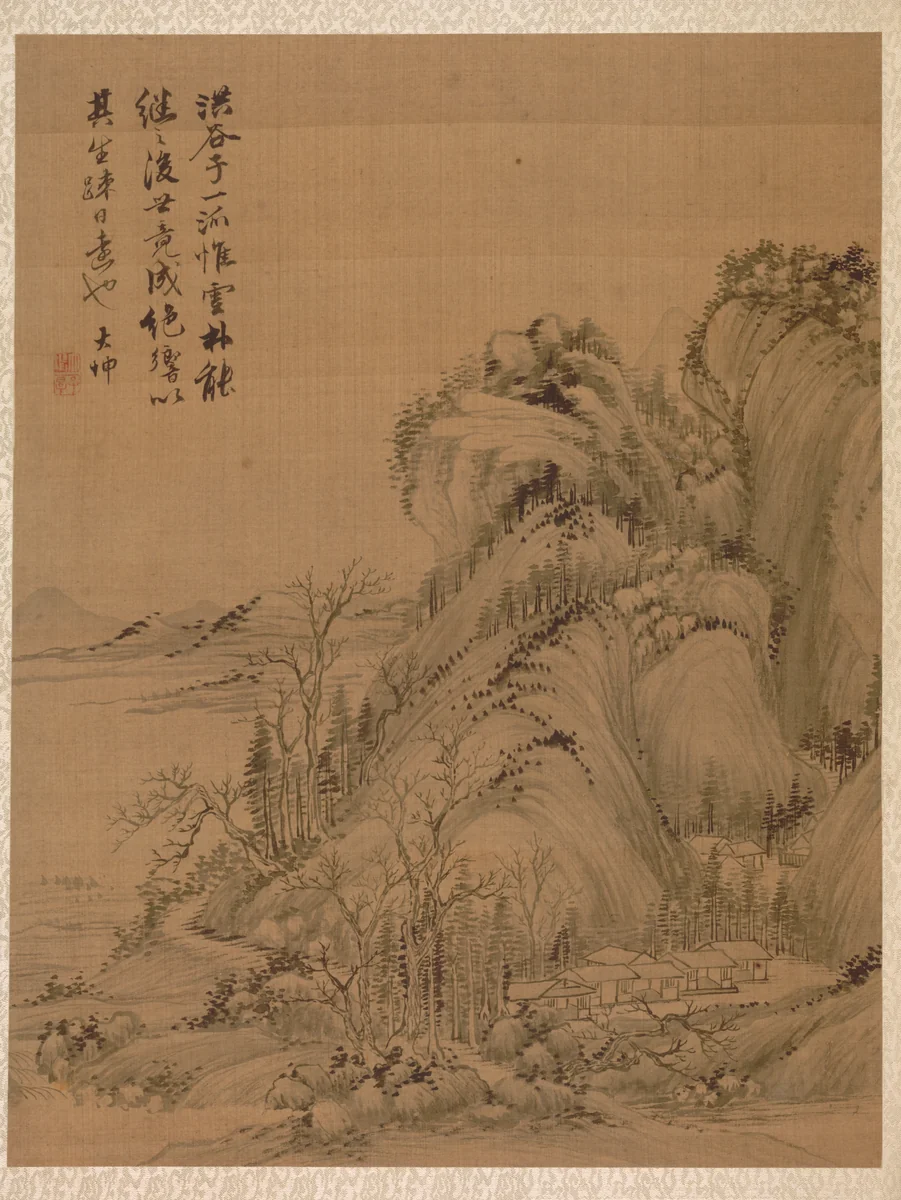 洪谷子一派惟雲林能
继之後世竟成絕響以
其生疎日遠也 大坤